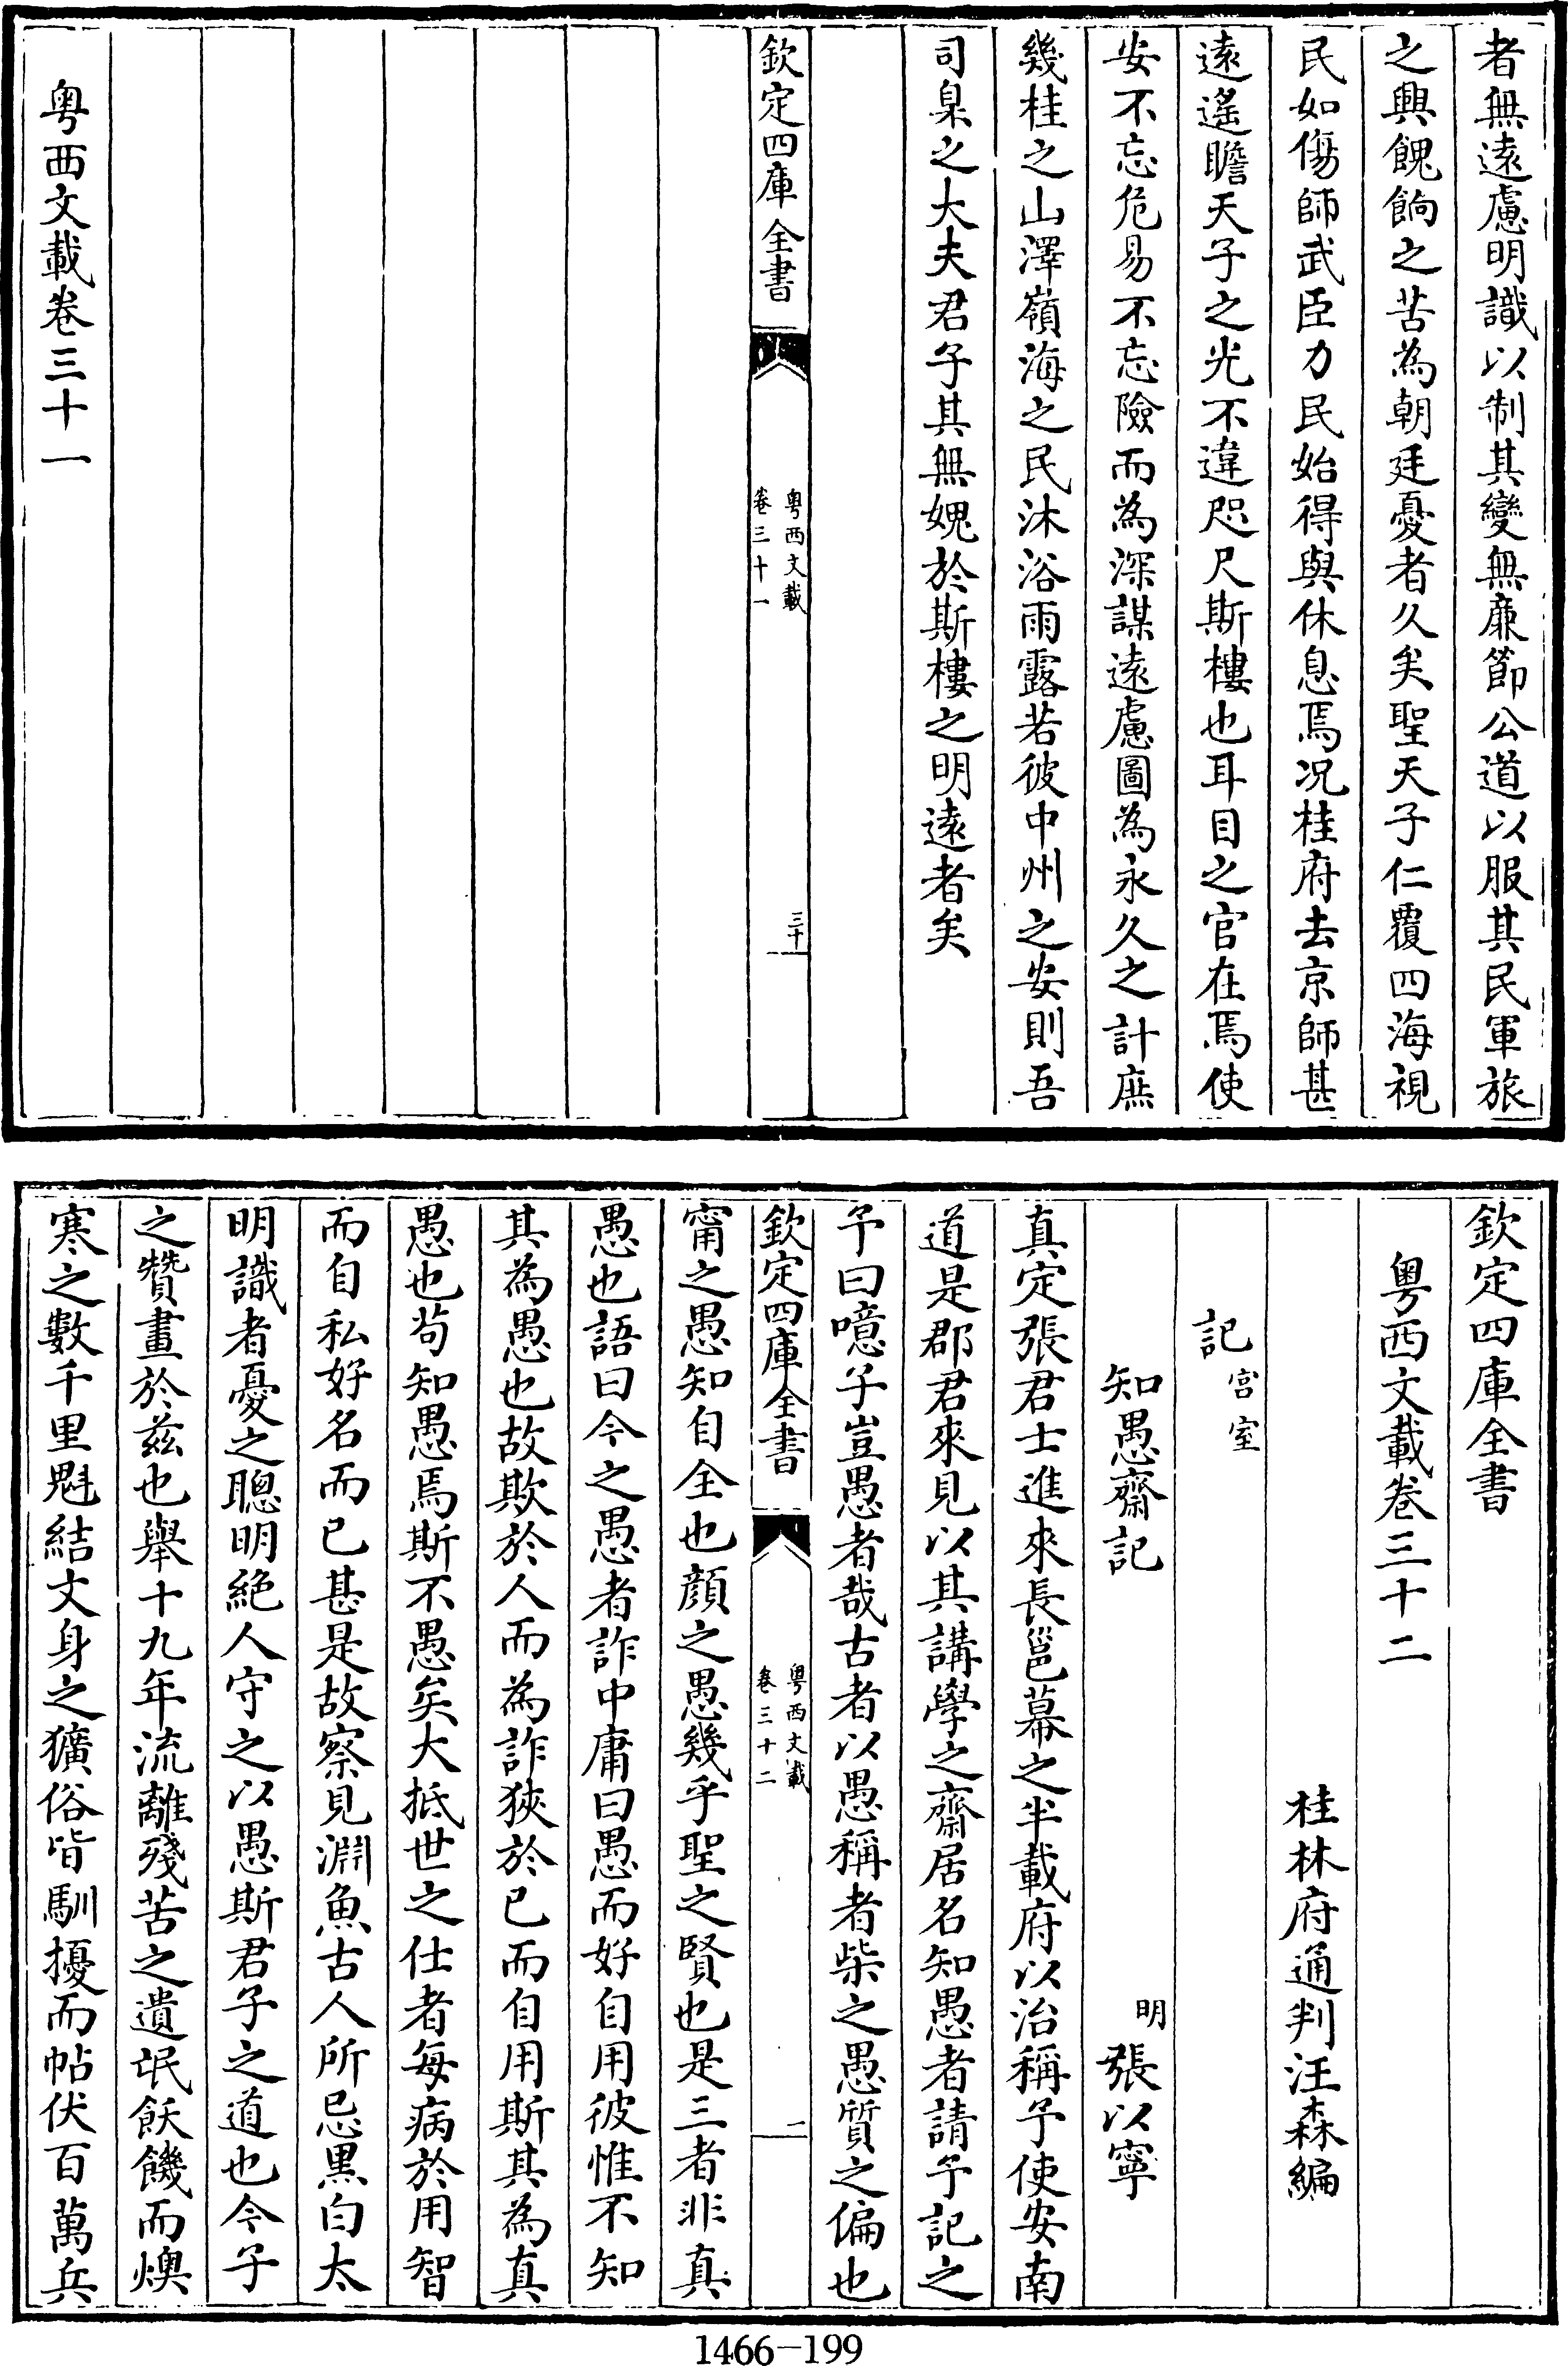 者無遠慮明識以制其變無廉節公道以服其民軍旅
之興餽餉之苦為朝廷憂者久矣聖天子仁覆四海視
民如傷師武臣力民始得與休息焉况桂府去京師甚
遠遙瞻天子之光不違咫尺斯樓也耳目之官在焉使
安不忘危易不忘險而為深謀遠慮圖為永久之計庶
幾桂之山澤嶺海之民沐浴雨露若彼中州之安則吾
司臬之大夫君子其無媿於斯樓之明遠者矣
欽定四庫全書
粤西文載
卷三十一
三十
粤西文載卷三十一
欽定四庫全書
粤西文載卷三十二
桂林府通判汪森編
記宮室
知愚齋記
明張以寧
真定張君士進來長邕幕之半載府以治稱予使安南
道是郡君來見以其講學之齋居名知愚者請予記之
予曰噫子豈愚者哉古者以愚稱者柴之愚質之偏也
欽定四庫全書
粤西文載
卷三十二
一
甯之愚知自全也顔之愚幾乎聖之賢也是三者非真
愚也語曰今之愚者詐中庸曰愚而好自用彼惟不知
其為愚也故欺於人而為詐狹於已而自用斯其為真
愚也茍知愚焉斯不愚矣大抵世之仕者每病於用智
而自私好名而已甚是故察見淵魚古人所忌黒白太
明識者憂之聰明絶人守之以愚斯君子之道也今子
之贊畫於兹也舉十九年流離殘苦之遺氓飫饑而燠
寒之數千里魁結文身之獷俗皆馴擾而帖伏百萬兵
1466-199